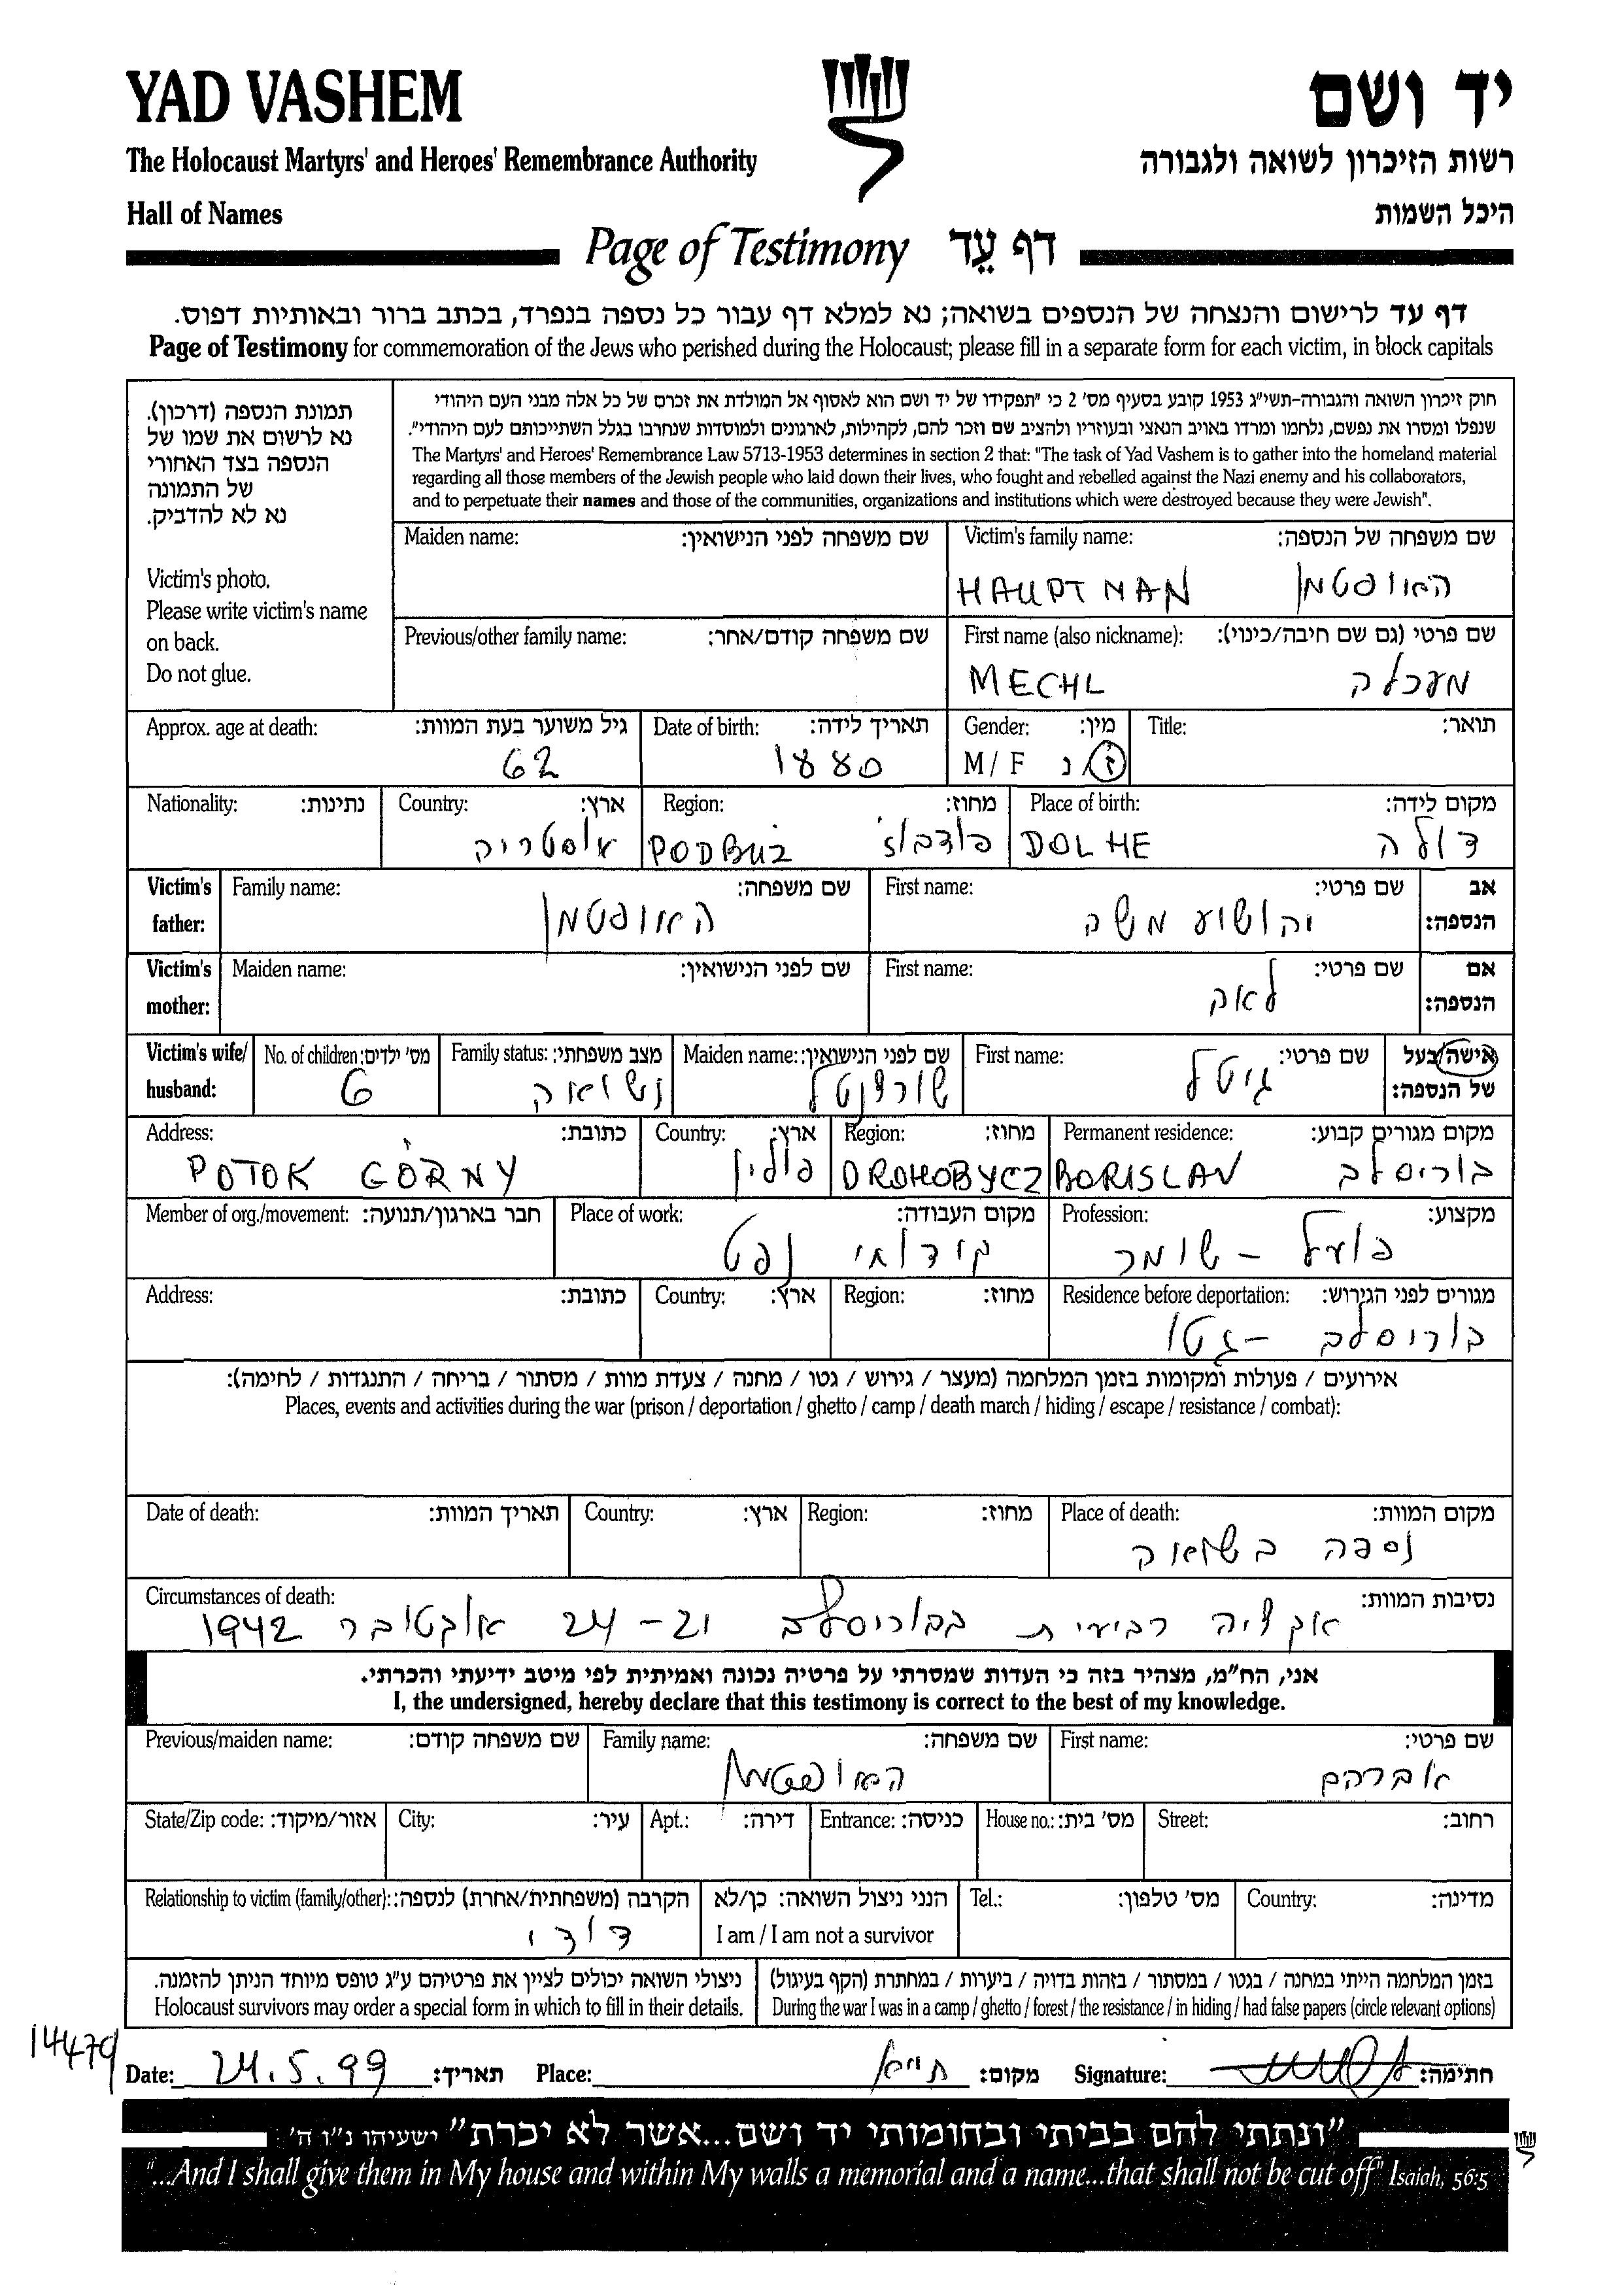 YAD VASHEM יד ושם
The Holocaust Martyrs' and Heroes' Remembrance Authority רשות הזיכרון לשואה ולגבורה
Hall of Names היכל השמות
Page of Testimony דף עֵד
דף עד לרישום והנצחה של הנספים בשואה; נא למלא דף עבור כל נספה בנפרד, בכתב ברור ובאותיות דפוס.
Page of Testimony for commemoration of the Jews who perished during the Holocaust; please fill in a separate form for each victim, in block capitals
תמונת הנספה (דרכון).
נא לרשום את שמו של
הנספה בצד האחורי
של התמונה
נא לא להדביק.
Victim's photo.
Please write victim's name
on back.
Do not glue.
חוק זיכרון השואה והגבורה-תשי"ג 1953 קובע בסעיף מס' 2 כי "תפקידו של יד ושם הוא לאסוף אל המולדת את זכרם של כל אלה מבני העם היהודי
שנפלו ומסרו את נפשם, נלחמו ומרדו באויב הנאצי ובעוזריו ולהציב שם וזכר להם, לקהילות, לארגונים ולמוסדות שנחרבו בגלל השתייכותם לעם היהודי".
The Martyrs' and Heroes' Remembrance Law 5713-1953 determines in section 2 that: "The task of Yad Vashem is to gather into the homeland material
regarding all those members of the Jewish people who laid down their lives, who fought and rebelled against the Nazi enemy and his collaborators,
and to perpetuate their names and those of the communities, organizations and institutions which were destroyed because they were Jewish".
Maiden name: שם משפחה לפני הנישואין: Victim's family name: שם משפחה של הנספה:
HAUPTMAN האופטמן
Previous/other family name: שם משפחה קודם/אחר: First name (also nickname): שם פרטי (גם שם חיבה/כינוי):
MECHL מעכלה
Approx. age at death: גיל משוער בעת המוות: Date of birth: תאריך לידה: Gender: מין: Title: תואר:
62 1880 M / F ז/נ
Nationality: נתינות: Country: ארץ: Region: מחוז: Place of birth: מקום לידה:
אוסטריה PODBUŻ פודבוז' DOLHE דולה
Victim's father: Family name: שם משפחה: First name: שם פרטי: אב הנספה:
האופטמן יהושוע משה
Victim's mother: Maiden name: שם לפני הנישואין: First name: שם פרטי: אם הנספה:
לאה
Victim's wife/ husband: No. of children: מס' ילדים: Family status: מצב משפחתי: Maiden name: שם לפני הנישואין: First name: שם פרטי: אישה/בעל של הנספה:
6 נשואה גיטל
Address: כתובת: Country: ארץ: Region: מחוז: Permanent residence: מקום מגורים קבוע:
POTOK GÓRNY פולין DROHOBYCZ BORISLAV בוריסלב
Member of org./movement: חבר בארגון/תנועה: Place of work: מקום העבודה: Profession: מקצוע:
קידוחי נפט פועל - שומר
Address: כתובת: Country: ארץ: Region: מחוז: Residence before deportation: מגורים לפני הגירוש:
בוריסלב - גטו
אירועים / פעולות ומקומות בזמן המלחמה (מעצר / גירוש / גטו / מחנה / צעדת מוות / מסתור / בריחה / התנגדות / לחימה):
Places, events and activities during the war (prison / deportation / ghetto / camp / death march / hiding / escape / resistance / combat):
Date of death: תאריך המוות: Country: ארץ: Region: מחוז: Place of death: מקום המוות:
נספה בשואה
Circumstances of death: נסיבות המוות:
אקציה רביעית בבוריסלב 21 - 24 אוקטובר 1942
אני, הח"מ, מצהיר בזה כי העדות שמסרתי על פרטיה נכונה ואמיתית לפי מיטב ידיעתי והכרתי.
I, the undersigned, hereby declare that this testimony is correct to the best of my knowledge.
Previous/maiden name: שם משפחה קודם: Family name: שם משפחה: First name: שם פרטי:
האופטמן אברהם
State/Zip code: אזור/מיקוד: City: עיר: Apt.: דירה: Entrance: כניסה: House no.: מס' בית: Street: רחוב:
Relationship to victim (family/other): הקרבה (משפחתית/אחרת) לנספה: הנני ניצול השואה: כן/לא Tel.: מס' טלפון: Country: מדינה:
דודי I am / I am not a survivor
ניצולי השואה יכולים לציין את פרטיהם ע"ג טופס מיוחד הניתן להזמנה. בזמן המלחמה הייתי במחנה / בגטו / במסתור / בזהות בדויה / ביערות / במחתרת (הקף בעיגול)
Holocaust survivors may order a special form in which to fill in their details. During the war I was in a camp / ghetto / forest / the resistance / in hiding / had false papers (circle relevant options)
14479
Date: 24.5.99 תאריך: Place: מקום: Signature: חתימה:
"ונתתי להם בביתי ובחומותי יד ושם...אשר לא יכרת" ישעיהו נ"ו ה'
"...And I shall give them in My house and within My walls a memorial and a name...that shall not be cut off" Isaiah, 56:5